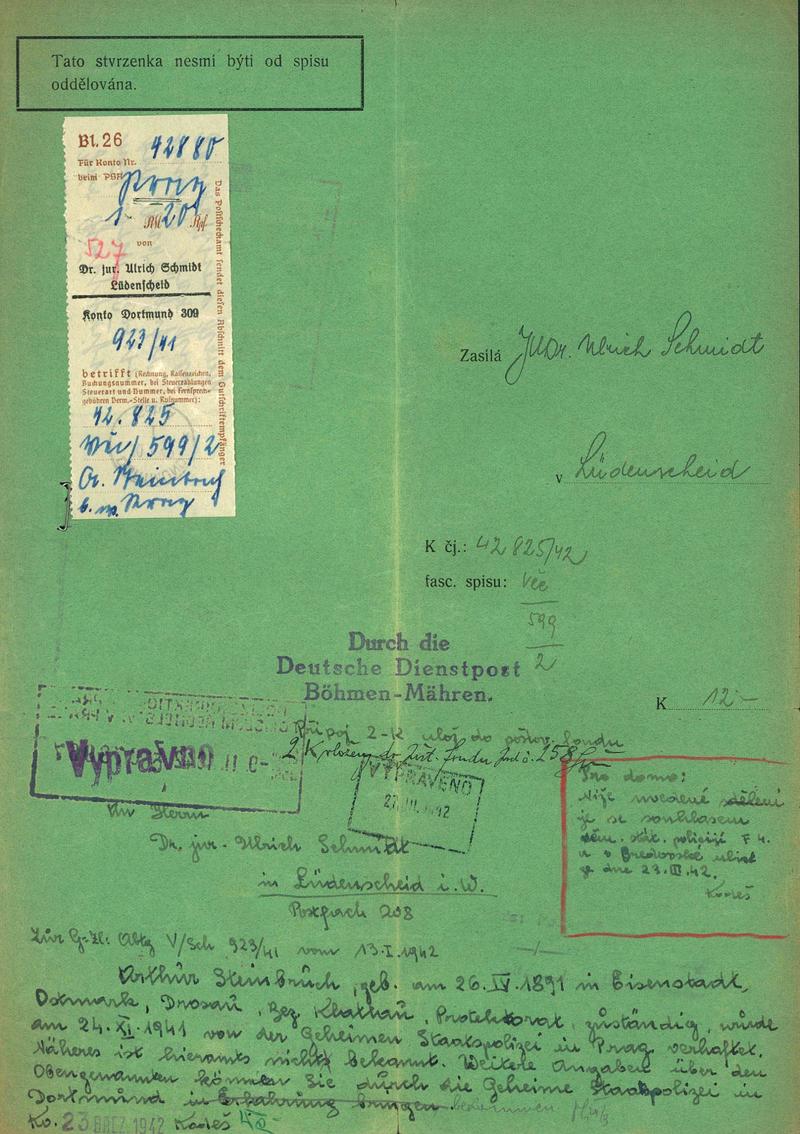 Tato stvrzenka nesmí býti od spisu
oddělována.
Bl. 26
Für Konto Nr. 42880
beim PSA
Prag
1 RM 20 Rpf
527
von
Dr. jur. Ulrich Schmidt
Lüdenscheid
Konto Dortmund 309
923/41
betrifft (Rechnung, Kassenzeichen,
Buchungsnummer, bei Steuerzahlungen
Steuerart und Nummer, bei Fernsprech-
gebühren Verm.-Stelle u. Rufnummer):
42.825
Več/599/2
A. Steinbruch
b. w. Prag
Das Postscheckamt sendet diesen Abschnitt dem Gutschriftempfänger
Zasílá JUDr. Ulrich Schmidt
v Lüdenscheid
K čj.: 42 825/42
fasc. spisu: Več
599
2
Durch die
Deutsche Dienstpost
Böhmen-Mähren.
K 12-
Připoj. 2-K ulož do poštov. fondu
2 K vloženy do pošt. fondu pod č. 258
Vypraveno
VYPRAVENO
27. III. 1942
Pro domo:
Níže uvedené sdělení
je se souhlasem
něm. stát. policie
v Bredovské ulici
ze dne 23.III.42.
Kadeš
An Herrn
Dr. jur. Ulrich Schmidt
in Lüdenscheid i. W.
Postfach 208
Zur G-Zl: Abtg V/Sch 923/41 vom 13.I.1942
Arthur Steinbruch, geb. am 26.IV.1891 in Eisenstadt,
Ostmark, Drosau, Bez. Klattau, Protektorat, zuständig, wurde
am 24.XI.1941 von der Geheimen Staatspolizei in Prag verhaftet.
Näheres ist hieramts nicht bekannt. Weitere Angaben über den
Obengenannten können Sie durch die Geheime Staatspolizei in
Dortmund in Erfahrung bringen. bekommen.
Ko. 23 BŘEZ. 1942 Kadeš